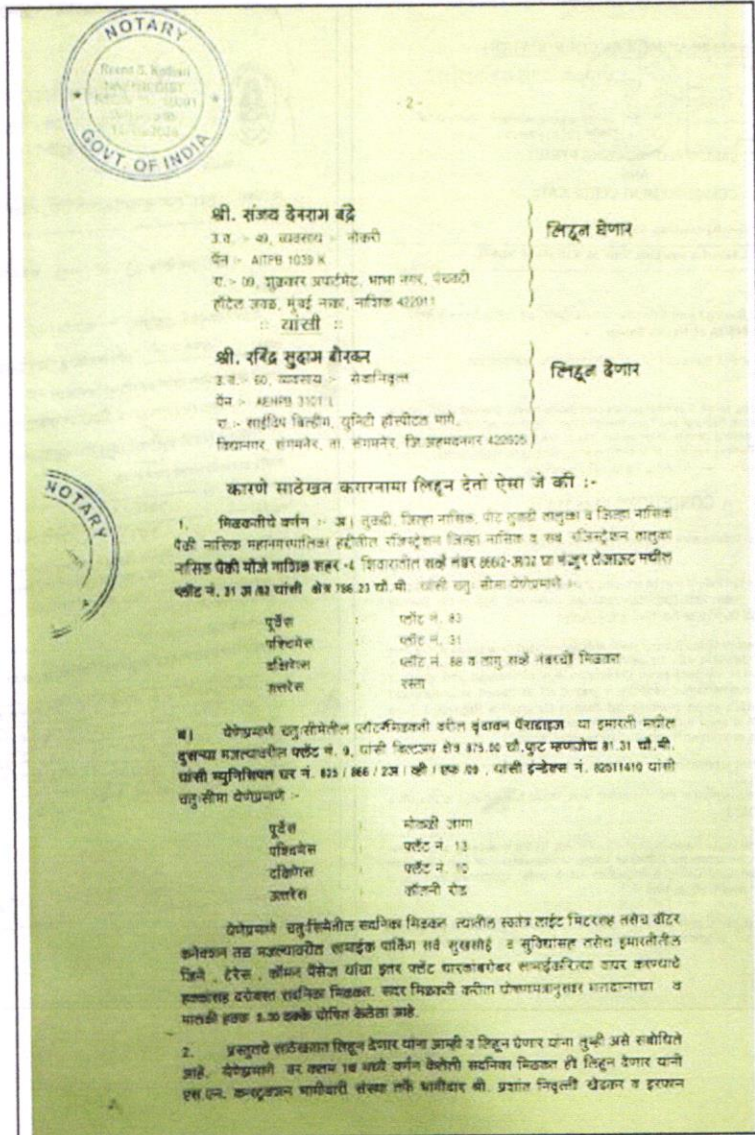 NOTARY
GOVT. OF INDIA
- 2 -
श्री. संजय देवराम बंद्रे
उ.व. :- 49, व्यवसाय :- नोकरी
पॅन :- AITPB 1039 K
रा. :- 09, अपार्टमेंट, भाभा नगर,
हॉटेल जवळ, मुंबई नाका, नाशिक 422011
लिहून घेणार
:: यांसी ::
श्री. रविंद्र सुदाम बोरकर
उ.व. :- 60, व्यवसाय :- सेवानिवृत्त
पॅन :- AEHPB 3101 L
रा. :- साईदिप बिल्डींग, युनिटी हॉस्पीटल मागे,
विद्यानगर, संगमनेर, ता. संगमनेर, जि.अहमदनगर
लिहून देणार
NOTARY
कारणे साठेखत करारनामा लिहून देतो ऐसा जे की :-
1. मिळकतीचे वर्णन :- अ। तुकडी, जिल्हा नासिक, पोट तुकडी तालुका व जिल्हा नासिक
पैकी नासिक महानगरपालिका हद्दीतील रजिस्ट्रेशन जिल्हा नासिक व सब रजिस्ट्रेशन तालुका
नासिक पैकी मौजे नाशिक शहर -4 शिवारातील सर्व्हे नंबर या मंजुर लेआऊट मधील
प्लॉट नं. 31 यांसी क्षेत्र चौ.मी. यांसी चतु: सीमा येणेप्रमाणे :-
पूर्वेस : प्लॉट नं.
पश्चिमेस : प्लॉट नं. 31
दक्षिणेस : प्लॉट नं. व लागु सर्व्हे नंबरची मिळकत
उत्तरेस : रस्ता
ब। येणेप्रमाणे चतु:सीमेतील प्लॉटमिळकती वरील वृंदावन पॅराडाइज या इमारती मधील
दुसऱ्या मजल्यावरील फ्लॅट नं. 9, यांसी बिल्टअप क्षेत्र 875.00 चौ.फुट म्हणजेच 81.31 चौ.मी.
यांसी म्युनिसिपल घर नं. यांसी इन्डेक्स नं. यांसी
चतु:सीमा येणेप्रमाणे :-
पूर्वेस : मोकळी जागा
पश्चिमेस : फ्लॅट नं. 13
दक्षिणेस : फ्लॅट नं. 10
उत्तरेस : कॉलनी रोड
येणेप्रमाणे चतु:सिमेतील सदनिका मिळकत त्यातील स्वतंत्र लाईट मिटरसह तसेच वॉटर
कनेक्शन तळ मजल्यावरील सामाईक पार्किंग सर्व सुखसोई व सुविधासह तसेच इमारतीतील
जिने , टेरेस , कॉमन पॅसेज यांचा इतर फ्लॅट धारकांबरोबर सामाईकरित्या वापर करण्याचे
हक्कासह दरोबस्त सदनिका मिळकत. सदर मिळकती करीता घोषणापत्रानुसार मतदानाचा व
मालकी हक्क टक्के घोषित केलेला आहे.
2. प्रस्तुतचे साठेखतात लिहून देणार यांना आम्ही व लिहून घेणार यांना तुम्ही असे संबोधिले
आहे. येणेप्रमाणे वर कलम 1ब मध्ये वर्णन केलेली सदनिका मिळकत ही लिहून देणार यांनी
एस.एन. कन्स्ट्रक्शन भागीदारी संस्था तर्फे भागीदार श्री. प्रशांत निवृत्ती खेडकर व इरफान